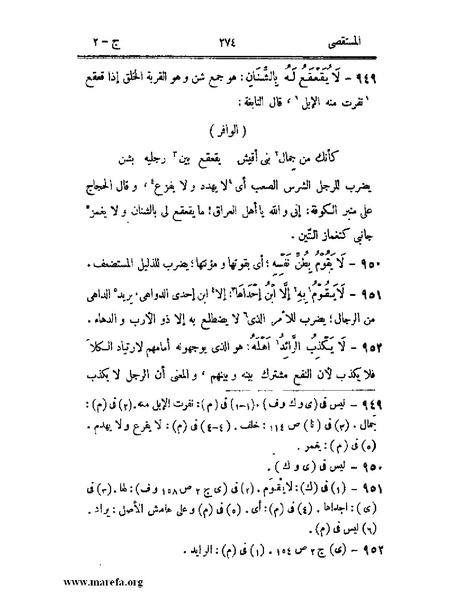 المستقصى ٢٧٤ ج - ٢
٩٤٩ - لَا يُقَعْقَعُ لَهُ بِالشِّنَانِ: هو جمع شن و هو القربة الخلق إذا قعقع
١نفرت منه الإبل١، قال النابغة:
(الوافر)
كأنك من جمال٢ بنى أقيش يقعقع بين٣ رجليه بشن
يضرب للرجل الشرس الصعب أى ٤لا يهدد و لا يفزع٤، و قال الحجاج
على منبر الكوفة: إنى و الله يا أهل العراق! ما يقعقع لى بالشنان و لا يغمز٥
جانبى كتغماز التّين.
٩٥٠ - لَا يَقُوْمُ بِطُنِّ نَفْسِهِ؛ أى بقوتها و مؤنتها؛ يضرب للذليل المستضعف.
٩٥١ - لَا يَقُوْمُ١ بِهِ٢ إِلَّا ابْنُ إِحْدَاهَا٣: إلا٤ ابن إحدى الدواهى، يريد٥ الداهى
من الرجال؛ يضرب للأمر الذى٦ لا يضطلع به إلا ذو الأرب و الدهاء.
٩٥٢ - لَا يَكْذِبُ الرَّائِدُ١ أَهْلَهُ: هو الذى يوجهونه أمامهم لارتياد الكلأ
فلا يكذب لأن النفع مشترك بينه و بينهم، و المعنى أن الرجل لا يكذب
٩٤٩ - ليس فى (ى و ك وف). (١-١) فى (م): نفرت الإبل منه. (٢) فى (م):
جمال. (٣) فى (تا) ص ١١٤: خلف. (٤-٤) فى (م): لا يفرع و لا يهدم.
(٥) فى (م): يغمر.
٩٥٠ - ليس فى (ى و ك).
٩٥١ - (١) فى (ك): لا يقوم. (٢) فى (ى ج ٢ ص ١٥٨ وف): لها. (٣) فى
(ى): اجداها. (٤) فى (م): أى. (٥) فى (م) و على هامش الأصل: يراد.
(٦) ليس فى (م).
٩٥٢ - (ى) ج ٢ ص ١٥٤. (١) فى (م): الرايد.
www.marefa.org